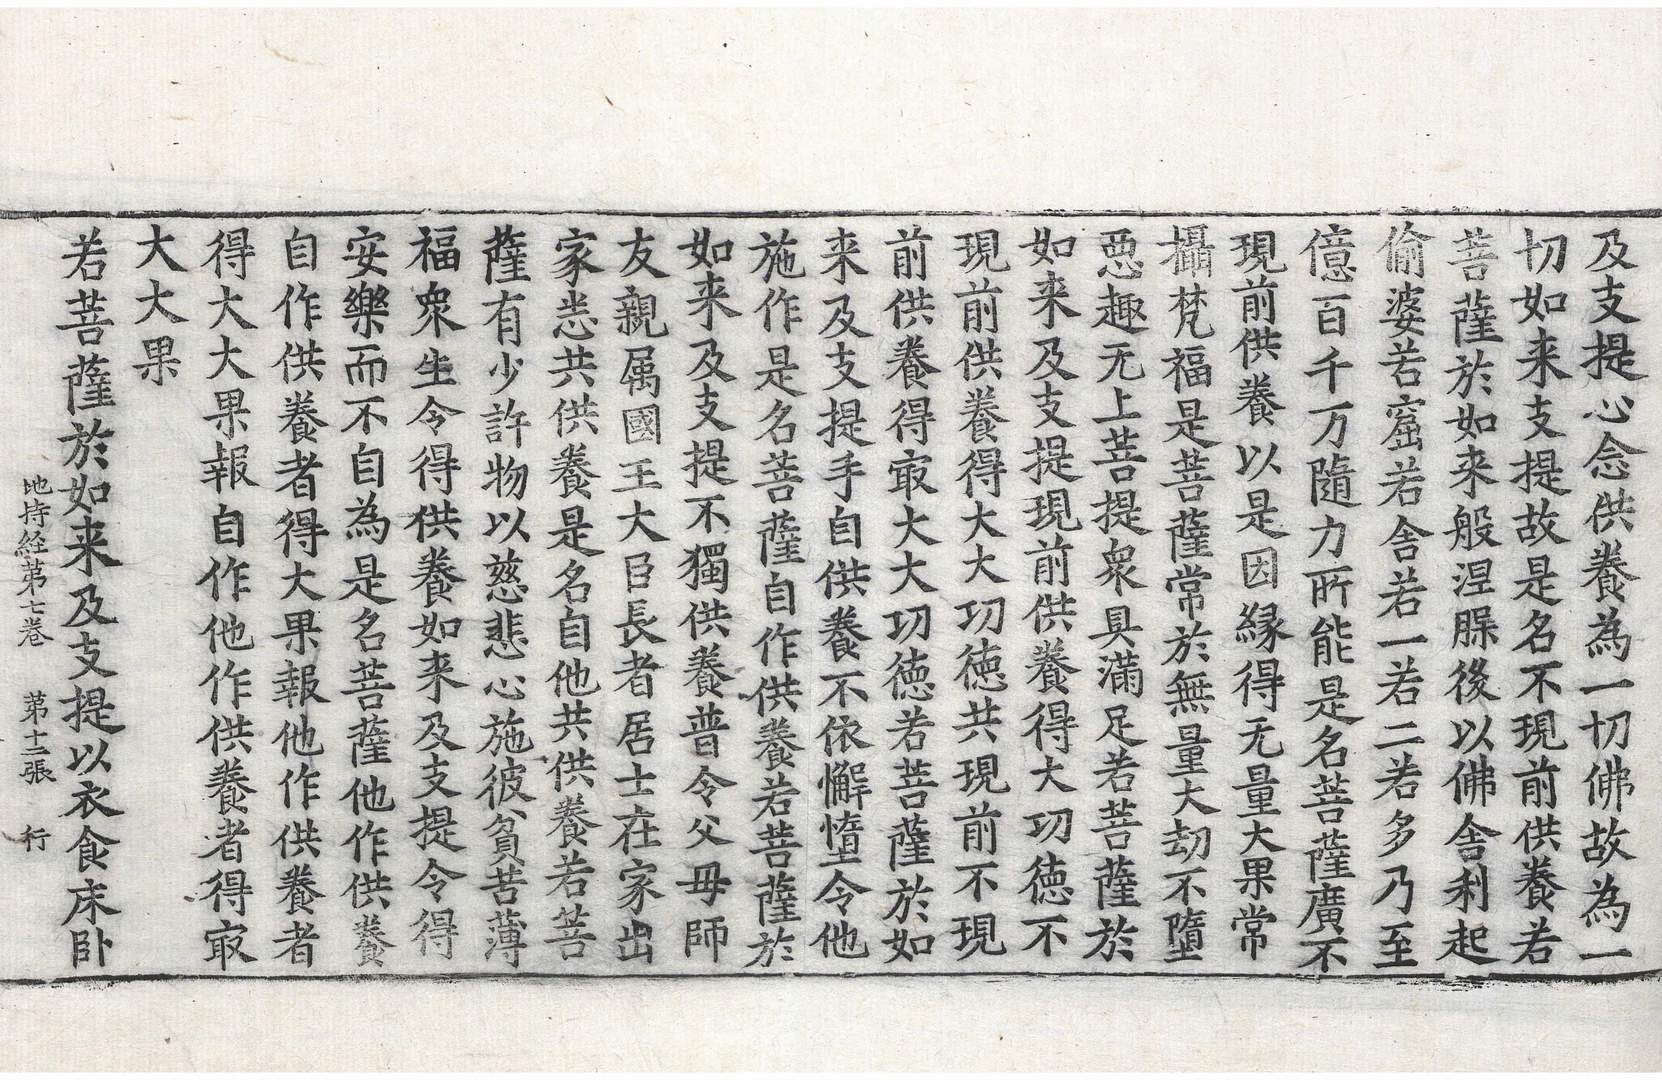 及支提心念供養為一切佛故為一
切如来支提故是名不現前供養若
菩薩於如来般涅槃後以佛舍利起
偷婆若窟若舍若一若二若多乃至
億百千万隨力所能是名菩薩廣不
現前供養以是因緣得无量大果常
攝梵福是菩薩常於無量大劫不墮
惡趣无上菩提衆具滿足若菩薩於
如来及支提現前供養得大功徳不
現前供養得大大功徳共現前不現
前供養得㝡大大功徳若菩薩於如
来及支提手自供養不依懈惰令他
施作是名菩薩自作供養若菩薩於
如来及支提不獨供養普令父毋師
友親属國王大臣長者居士在家出
家悉共供養是名自他共供養若菩
薩有少許物以慈悲心施彼貧苦薄
福衆生令得供養如来及支提令得
安樂而不自為是名菩薩他作供養
自作供養者得大果報他作供養者
得大大果報自作他作供養者得㝡
大大果
地持経苐七巻 苐十二張 行
若菩薩於如来及支提以衣食床卧